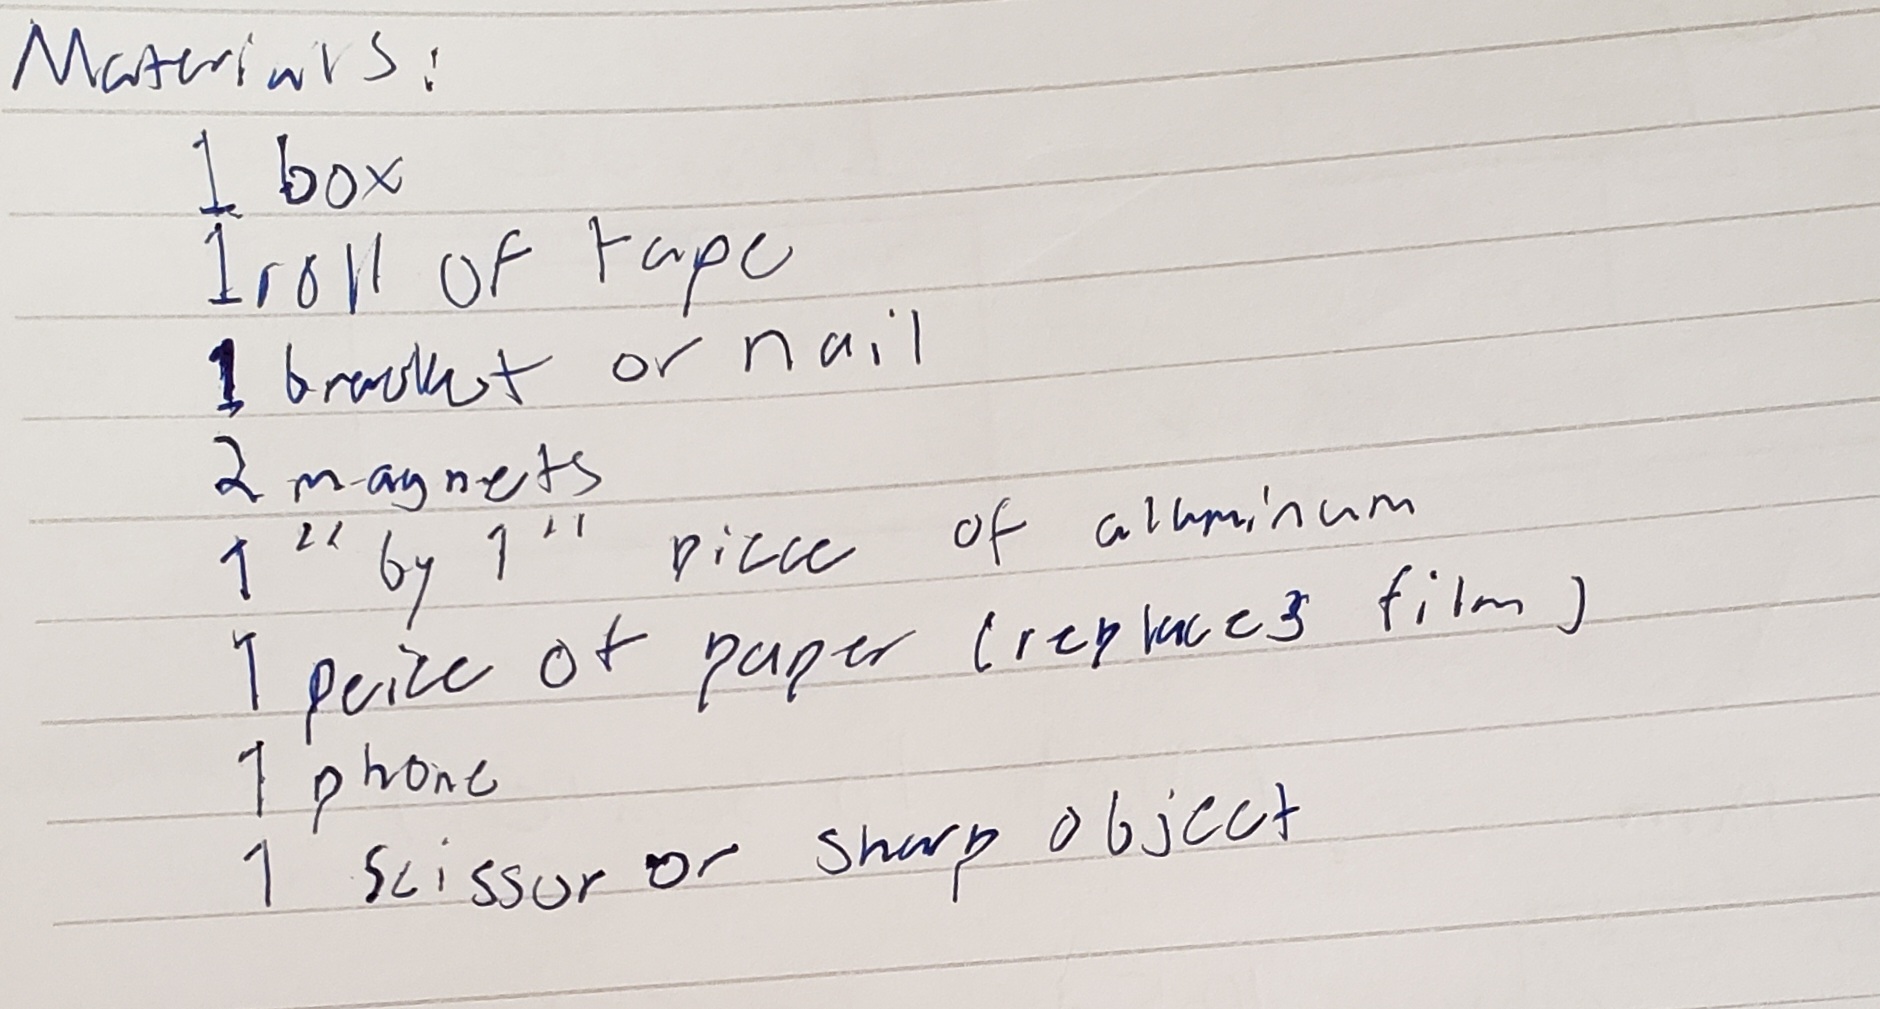 Materials:
1 box
1 roll of tape
1 bracket or nail
2 magnets
1" by 1" piece of alluminum
1 peice of paper (replaces film)
1 phone
1 scissor or sharp object